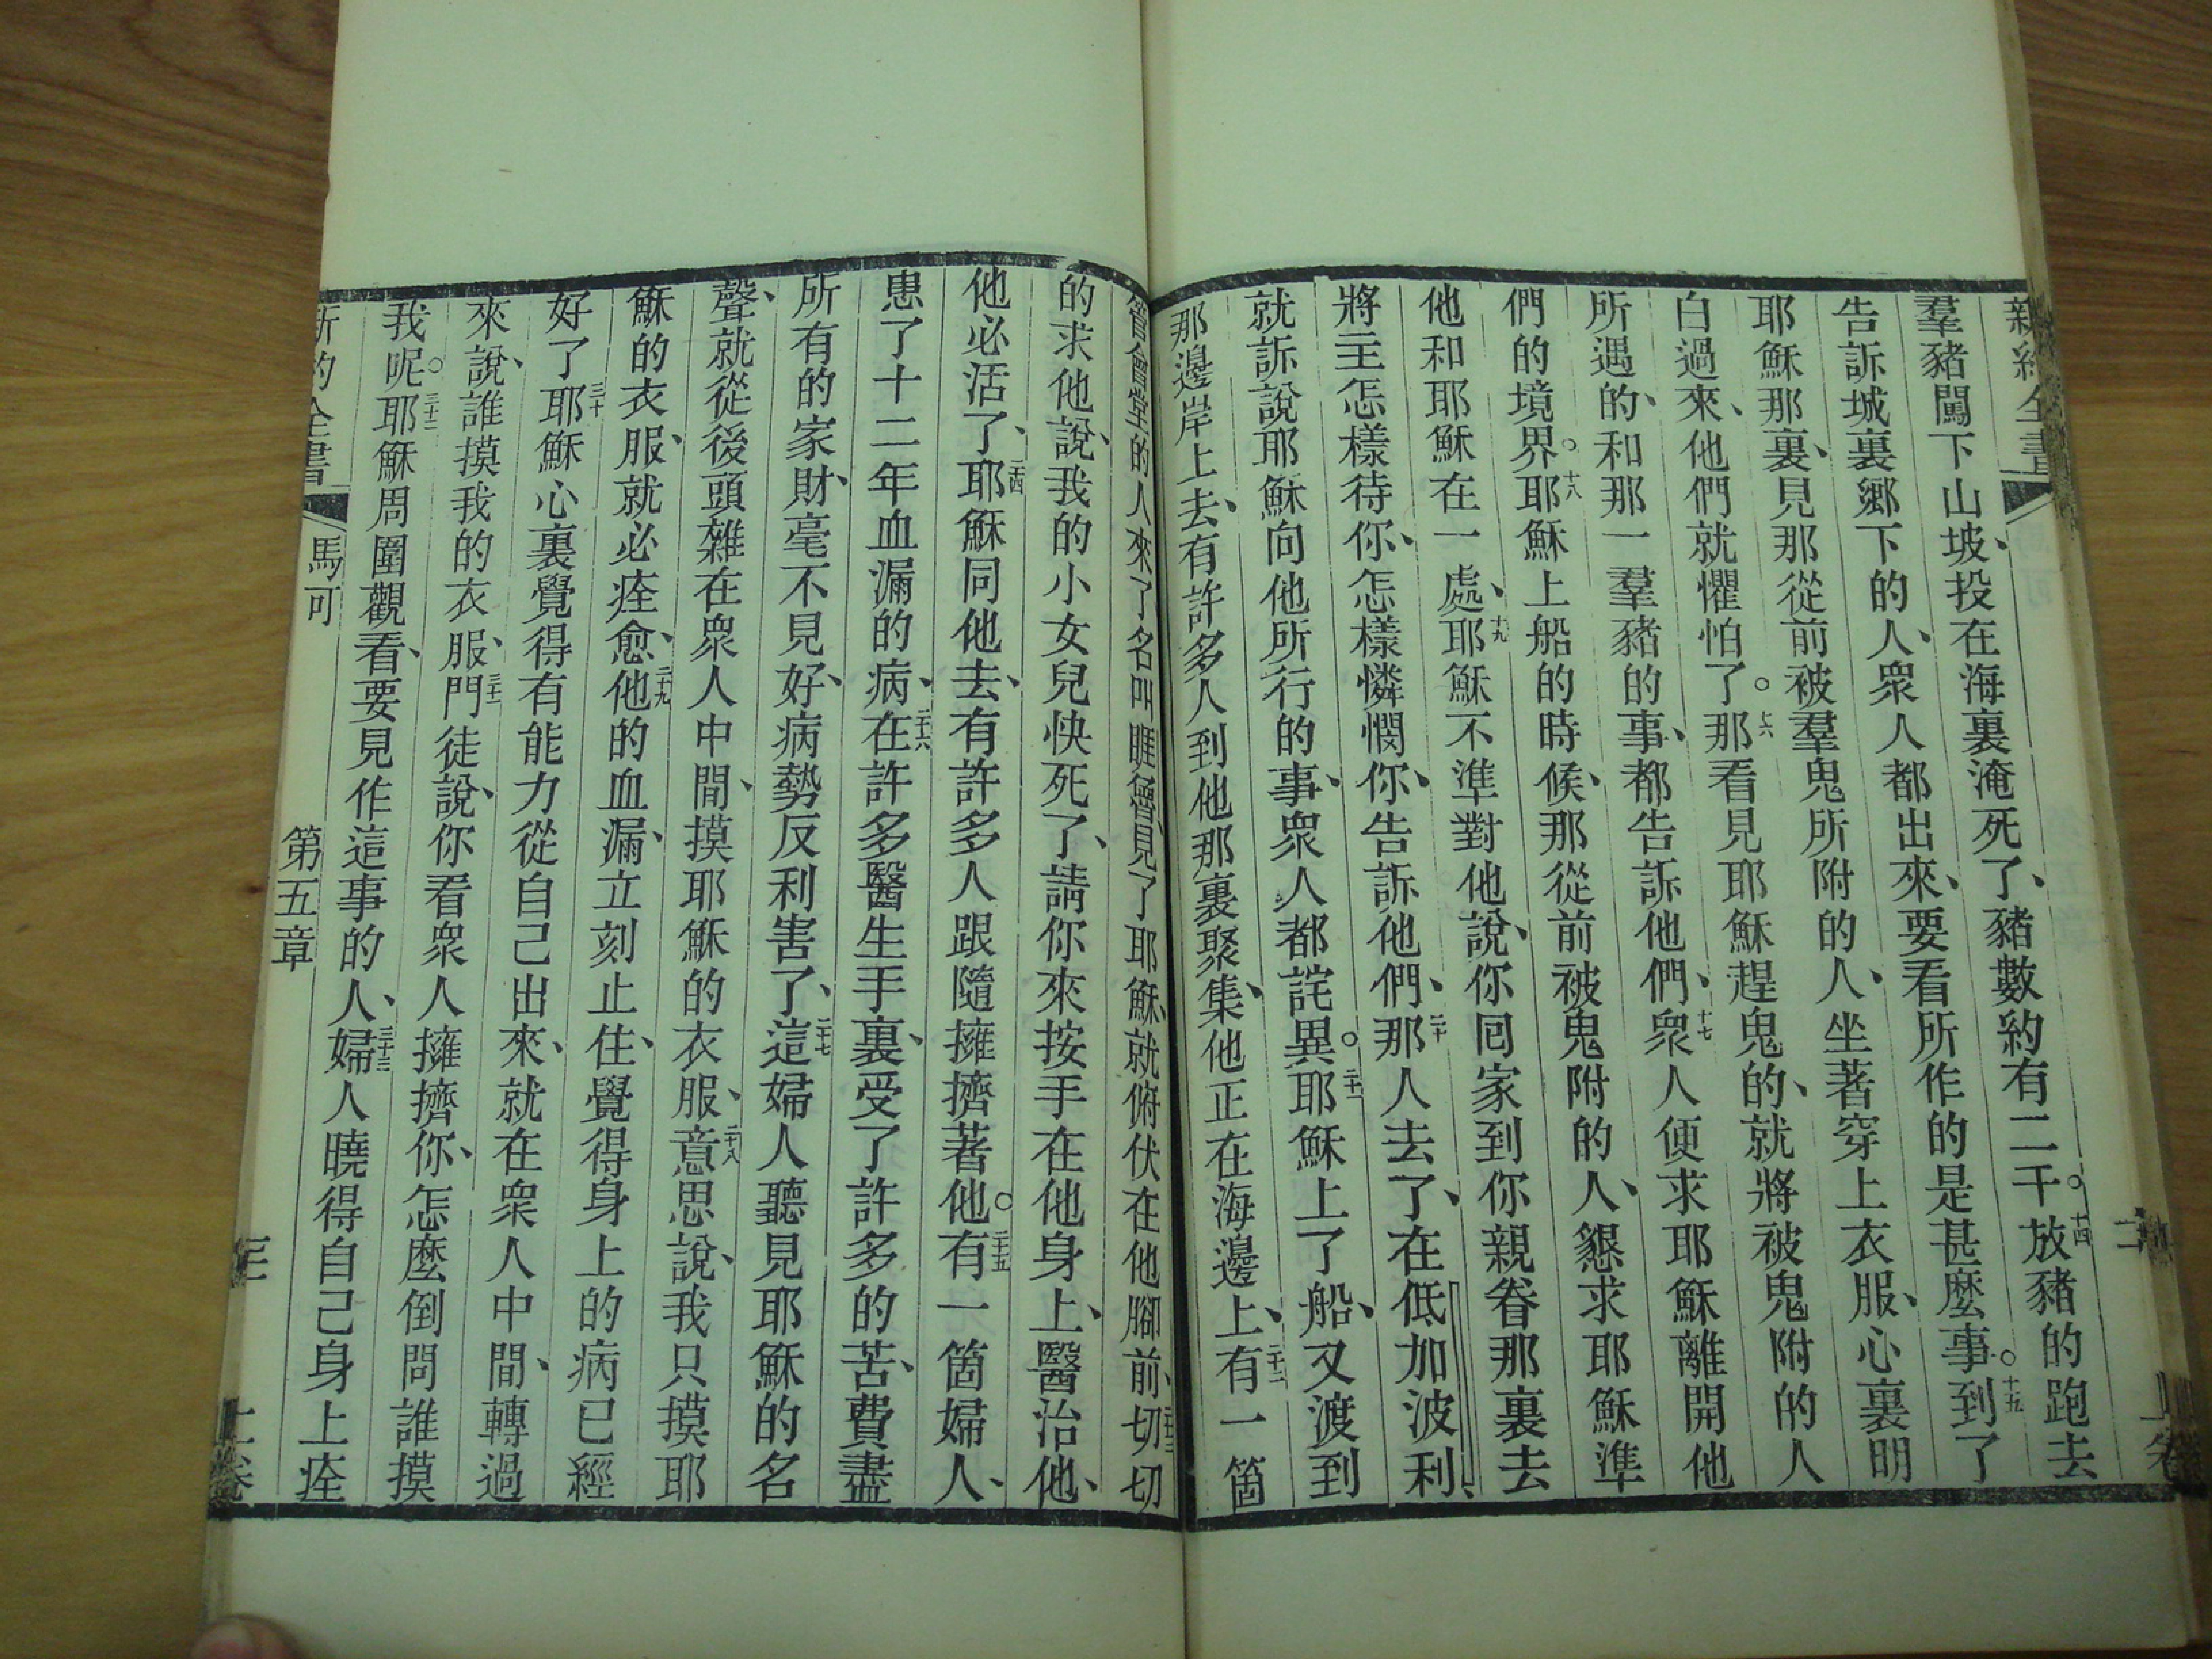 新約全書
羣豬闖下山坡、投在海裏淹死了、豬數約有二千。十四放豬的跑去
告訴城裏鄉下的人、衆人都出來、要看所作的是甚麼事。十五到了
耶穌那裏、見那從前被羣鬼所附的人、坐著穿上衣服、心裏明
白過來、他們就懼怕了。十六那看見耶穌趕鬼的、就將被鬼附的人
所遇的、和那一羣豬的事、都告訴他們、十七衆人便求耶穌離開他
們的境界。十八耶穌上船的時候、那從前被鬼附的人、懇求耶穌準
他和耶穌在一處、十九耶穌不準對他說、你回家到你親眷那裏去
將主怎樣待你、怎樣憐憫你、告訴他們、二十那人去了、在低加波利、
就訴說耶穌向他所行的事、衆人都詫異。二十一耶穌上了船、又渡到
那邊岸上去、有許多人到他那裏聚集、他正在海邊上、二十二有一箇
管會堂的人來了名叫睚魯、見了耶穌、就俯伏在他腳前、二十三切切
的求他說、我的小女兒快死了、請你來按手在他身上、醫治他、
他必活了、二十四耶穌同他去、有許多人跟隨擁擠著他。二十五有一箇婦人、
患了十二年血漏的病、二十六在許多醫生手裏、受了許多的苦、費盡
所有的家財、毫不見好、病勢反利害了、二十七這婦人聽見耶穌的名
聲、就從後頭雜在衆人中間、摸耶穌的衣服、二十八意思說、我只摸耶
穌的衣服、就必痊愈、二十九他的血漏、立刻止住、覺得身上的病已經
好了三十耶穌心裏覺得有能力從自己出來、就在衆人中間、轉過
來、說誰摸我的衣服、三十一門徒說、你看衆人擁擠你、怎麼倒問誰摸
我呢。三十二耶穌周圍觀看、要見作這事的人、三十三婦人曉得自己身上痊
新約全書 馬可 第五章 三 上卷